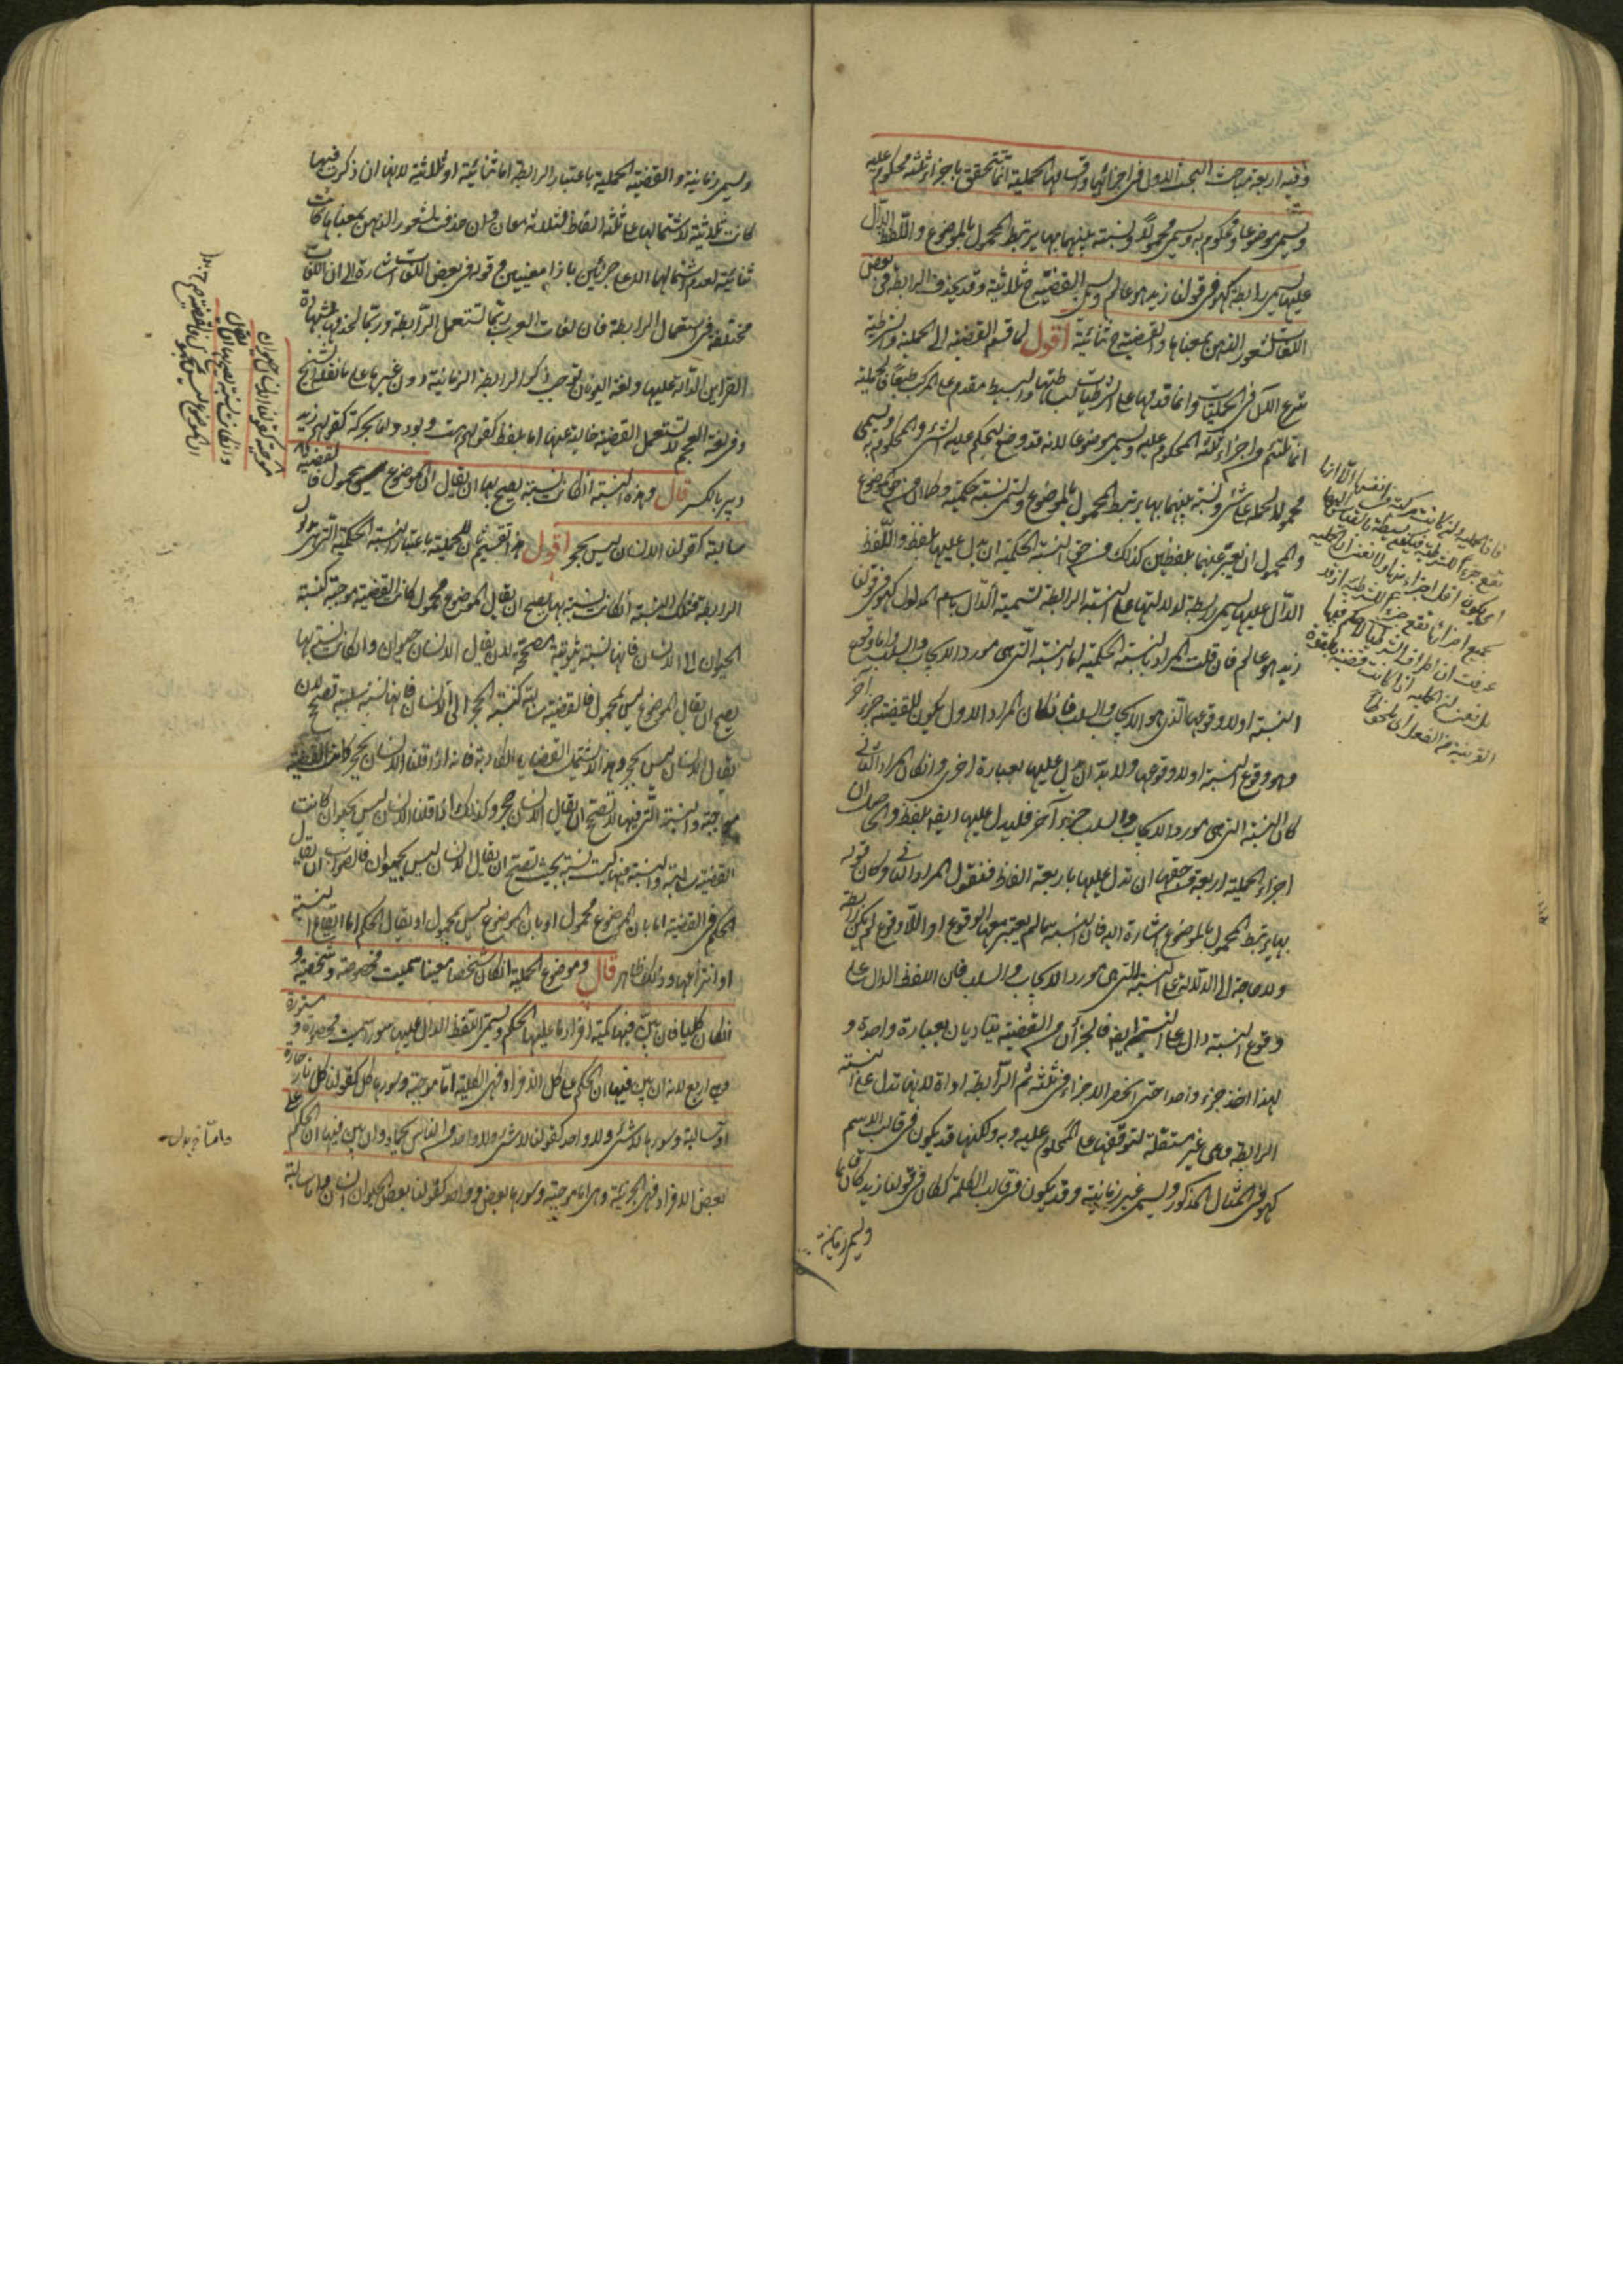 وفيه اربعة مباحث البحث الاول في اجزائها واقسامها الحملية انما تتحقق باجزاء ثلثة محكوم عليه
ويسمى موضوعا ومحكوم به ويسمى محمولا ونسبته بينهما بها يرتبط المحمول بالموضوع واللفظ الدال
عليها يسمى رابطة كهو في قولنا زيد هو عالم ويسمى القضية ح ثلاثية وقد يحذف الرابطة في بعض
اللغات لشعور الذهن بمعناها والقضية ح ثنائية اقول لما قسم القضية الى الحملية والشرطية
شرع الآن في الحمليات وانما قدمها على الشرطيات لبساطتها والبسيط مقدم على المركب طبعا فالحملية
انما تلتئم من اجزاء ثلثة المحكوم عليه ويسمى موضوعا لانه قد وضع ليحكم عليه بشئ والمحكوم به ويسمى
محمولا لحمله على شئ ونسبة بينهما بها يرتبط المحمول بالموضوع وتسمى نسبة حكمية وكما ان من حق الموضوع
والمحمول ان يعبر عنهما بلفظين كذلك من حق النسبة الحكمية ان يدل عليها بلفظ واللفظ
الدال عليها يسمى رابطة لدلالتها على النسبة الرابطة تسمية الدال باسم المدلول كهو في قولنا
زيد هو عالم فان قلت المراد بالنسبة الحكمية اما النسبة التي هي مورد الايجاب والسلب واما وقوع
النسبة اولا وقوعها الذي هو الايجاب والسلب فان كان المراد الاول يكون للقضية جزء آخر
وهو وقوع النسبة اولا وقوعها ولا بد ان يدل عليها بعبارة اخرى وان كان المراد الثاني
كان النسبة التي هي مورد الايجاب والسلب جزء آخر فليدل عليها ايضا بلفظ والحاصل ان
اجزاء الحملية اربعة فمن حقها ان تدل عليها باربعة الفاظ فنقول المراد الثاني وكان قوله
بها يرتبط المحمول بالموضوع اشارة اليه فان النسبة ما لم يعتبر معها الوقوع او اللاوقوع لم يكن رابطة
ولا حاجة الى الدلالة على النسبة التي هي مورد الايجاب والسلب فان اللفظ الدال على
وقوع النسبة دال على النسبة ايضا فالجزآن من القضية يتاديان بعبارة واحدة و
لهذا اخذ جزء واحدا حتى انحصر الاجزاء في ثلثة ثم الرابطة اداة لانها تدل على النسبة
الرابطة وهي غير مستقلة لتوقفها على المحكوم عليه وبه ولكنها قد يكون في قالب الاسم
كهو في المثال المذكور ويسمى غير زمانية وقد يكون في قالب الكلمة ككان في قولنا زيد كان قائما
ويسمى زمانية
ويسمى زمانية والقضية الحملية باعتبار الرابطة اما ثنائية او ثلاثية لانها ان ذكرت فيها
كانت ثلاثية لاشتمالها على ثلثة الفاظ لثلاثة معان وان حذفت لشعور الذهن بمعناها كانت
ثنائية لعدم اشتمالها الا على جزئين بازاء معنيين وقوله في بعض اللغات اشارة الى ان اللغات
مختلفة في استعمال الرابطة فان لغات العرب ربما تستعمل الرابطة وربما تحذفها بشهادة
القراين الدالة عليها ولغة اليونان توجب ذكر الرابطة الزمانية دون غيرها على ما نقله الشيخ
وفي لغة العجم لا تستعمل القضية خالية عنها اما بلفظ كقولهم است وبود واما بحركة كقولهم زيد
دبير بالكسر قال وهذه النسبة ان كانت نسبة يصح بها ان يقال ان الموضوع محمول فالقضية
سالبة كقولنا الانسان ليس بحجر اقول هذا تقسيم ثان للحملية باعتبار النسبة الحكمية التي هي مدلول
الرابطة فتلك النسبة ان كانت نسبة بها يصح ان يقال الموضوع محمول كانت القضية موجبة كنسبة
الحيوان الى الانسان فانها نسبة ثبوتية مصححة لان يقال الانسان حيوان وان كانت نسبة بها
يصح ان يقال الموضوع ليس بمحمول فالقضية سالبة كنسبة الحجر الى الانسان فانها نسبة سلبية تصحح لان
يقال الانسان ليس بحجر وهذا لا يشتمل القضايا الكاذبة فانه اذا قلنا الانسان حجر كانت القضية
موجبة والنسبة التي فيها لا تصحح ان يقال الانسان حجر وكذلك اذا قلنا الانسان ليس بحيوان كانت
القضية سالبة والنسبة فيها ليست نسبة بحيث تصحح ان يقال الانسان ليس بحيوان فالصواب ان يقال
الحكم في القضية اما بان الموضوع محمول او بان الموضوع ليس بمحمول او يقال الحكم اما ايقاع النسبة
او انتزاعها وذلك ظاهر قال وموضوع الحملية ان كان شخصا معينا سميت مخصوصة وشخصية و
ان كان كليا فان بين فيها كمية افراد ما عليها الحكم ويسمى اللفظ الدال عليها سورا سميت محصورة ومسورة
وهي اربع لانه ان بين فيها ان الحكم على كل الافراد فهي الكلية اما موجبة وسورها كل كقولنا كل نار حارة
او سالبة وسورها لا شئ ولا واحد كقولنا لا شئ ولا واحد من الناس بجماد وان بين فيها ان الحكم على
بعض الافراد فهي الجزئية وهي اما موجبة وسورها بعض وواحد كقولنا بعض الحيوان انسان واما سالبة
موجبة كقولنا الانسان حيوان
وان كانت نسبة بها يصح ان يقال
ان الموضوع ليس بمحمول